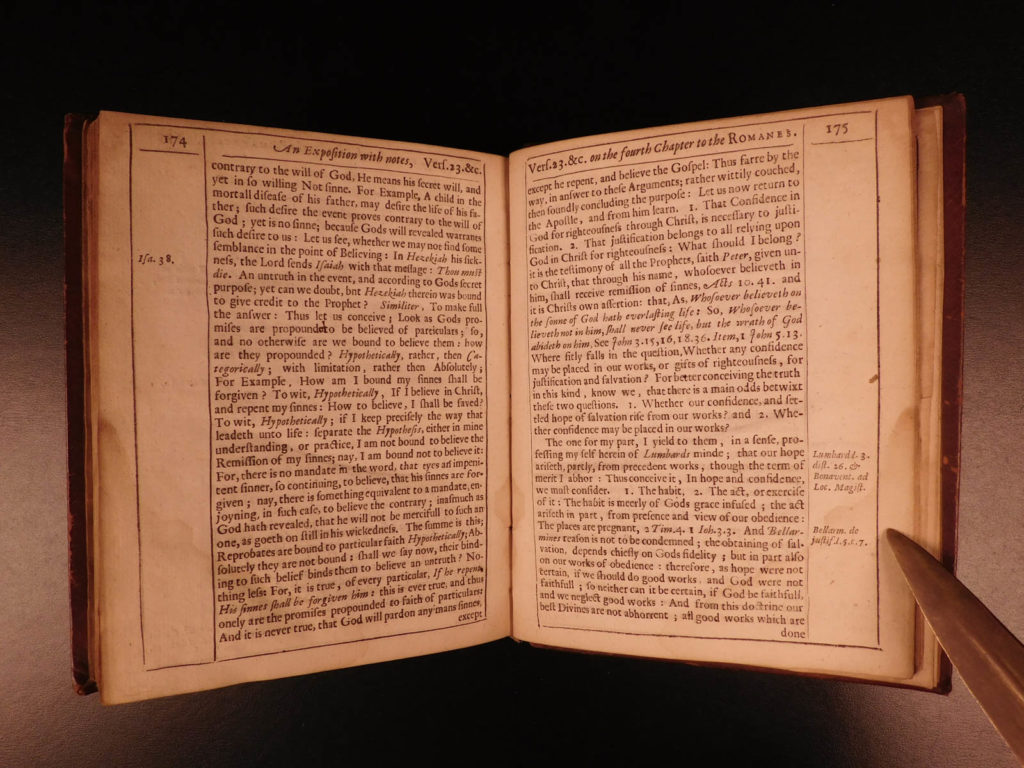 174
An Expoſition with notes, Verſ.23.&c.
contrary to the will of God, He means his ſecret will, and
yet in ſo willing Not ſinne. For Example, A child in the
mortall diſeaſe of his father, may deſire the life of his fa-
ther; ſuch deſire the event proves contrary to the will of
God; yet is no ſinne; becauſe Gods will revealed warrants
ſuch deſire to us: Let us ſee, whether we may not find ſome
ſemblance in the point of Believing: In Hezekiah his ſick-
neſs, the Lord ſends Iſaiah with that meſſage: Thou muſt
die. An untruth in the event, and according to Gods ſecret
purpoſe; yet can we doubt, but Hezekiah therein was bound
to give credit to the Prophet? Similiter, To make full
the anſwer: Thus let us conceive; Look as Gods pro-
miſes are propounded to be believed of particulars; ſo,
and no otherwiſe are we bound to believe them: how
are they propounded? Hypothetically, rather, then Ca-
tegorically; with limitation, rather then Abſolutely;
For Example, How am I bound my ſinnes ſhall be
forgiven? To wit, Hypothetically, If I believe in Chriſt,
and repent my ſinnes: How to believe, I ſhall be ſaved?
To wit, Hypothetically; if I keep preciſely the way that
leadeth unto life: ſeparate the Hypotheſis, either in mine
underſtanding, or practice, I am not bound to believe the
Remiſſion of my ſinnes; nay, I am bound not to believe it:
For, there is no mandate in the word, that tyes an impeni-
tent ſinner, ſo continuing, to believe, that his ſinnes are for-
given; nay, there is ſomething equivalent to a mandate, en-
joyning, in ſuch caſe, to believe the contrary; inaſmuch as
God hath revealed, that he will not be mercifull to ſuch an
one, as goeth on ſtill in his wickedneſs. The ſumme is this;
Reprobates are bound to particular faith Hypothetically; Ab-
ſolutely they are not bound: ſhall we ſay now, their bind-
ing to ſuch belief binds them to believe an untruth? No-
thing leſs: For, it is true, of every particular, If he repent,
His ſinnes ſhall be forgiven him: this is ever true, and thus
onely are the promiſes propounded to faith of particulars:
And it is never true, that God will pardon any mans ſinnes,
except
Iſa. 38.
Verſ.23.&c. on the fourth Chapter to the ROMANES.
175
except he repent, and believe the Goſpel: Thus farre by the
way, in anſwer to theſe Arguments; rather wittily couched,
then ſoundly concluding the purpoſe: Let us now return to
the Apoſtle, and from him learn. 1. That Confidence in
God for righteouſneſs through Chriſt, is neceſſary to juſti-
fication. 2. That juſtification belongs to all relying upon
God in Chriſt for righteouſneſs: What ſhould I belong?
it is the teſtimony of all the Prophets, ſaith Peter, given un-
to Chriſt, that through his name, whoſoever believeth in
him, ſhall receive remiſſion of ſinnes, Acts 10. 41. and
it is Chriſts own aſſertion: that, As, Whoſoever believeth on
the ſonne of God hath everlaſting life: So, Whoſoever be-
lieveth not in him, ſhall never ſee life, but the wrath of God
abideth on him, See John 3.15,16,18.36. Item, 1 John 5.13
Where fitly falls in the queſtion, Whether any confidence
may be placed in our works, or gifts of righteouſneſs, for
juſtification and ſalvation? For better conceiving the truth
in this kind, know we, that there is a main odds betwixt
theſe two queſtions. 1. Whether our confidence, and ſet-
tled hope of ſalvation riſe from our works? and 2. Whe-
ther confidence may be placed in our works?
The one for my part, I yield to them, in a ſenſe, pro-
feſſing my ſelf herein of Lumbards minde; that our hope
ariſeth, partly, from precedent works, though the term of
merit I abhor: Thus conceive it, In hope and confidence,
we muſt conſider. 1. The habit, 2. The act, or exerciſe
of it: The habit is meerly of Gods grace infuſed; the act
ariſeth in part, from preſence and view of our obedience:
The places are pregnant, 2 Tim. 4. 1 Ioh.3.3. And Bellar-
mines reaſon is not to be condemned; the obtaining of ſal-
vation, depends chiefly on Gods fidelity; but in part alſo
on our works of obedience: therefore, as hope were not
certain, if we ſhould do good works, and God were not
faithfull; ſo neither can it be certain, if God be faithfull,
and we neglect good works: And from this doctrine our
beſt Divines are not abhorrent; all good works which are
done
Lumbard l. 3.
diſt. 26. &
Bonavent. ad
Loc. Magiſt.
Bellarm. de
juſtif. l.5.c.7.